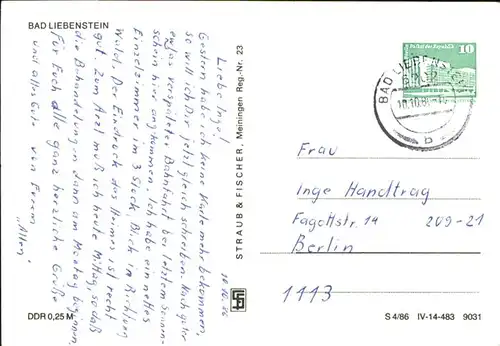 BAD LIEBENSTEIN
18.10.86
Liebe Inge!
Gestern habe ich keine Karte mehr bekommen,
so will ich Dir jetzt gleich schreiben. Nach guter
etwas verspäteter Bahnfahrt bei letztem Sonnen-
schein hier angekommen. Ich habe ein nettes
Einzelzimmer im 3. Stock, Blick in Richtung
Wald. Der Eindruck des Hauses ist recht
gut. Zum Arzt muß ich heute Mittag, so daß
die Behandlungen dann am Montag beginnen.
Für Euch alle ganz herzliche Grüße
und alles Gute von Eurem
"Alten"
DDR 0,25 M
STRAUB & FISCHER, Meiningen Reg.-Nr. 23
Palast der Republik
10
BAD LIEBENSTEIN
18.10.86
b
Frau
Inge Handtrag
Fagottstr. 14 209-21
Berlin
1113
S 4/86 IV-14-483 9031